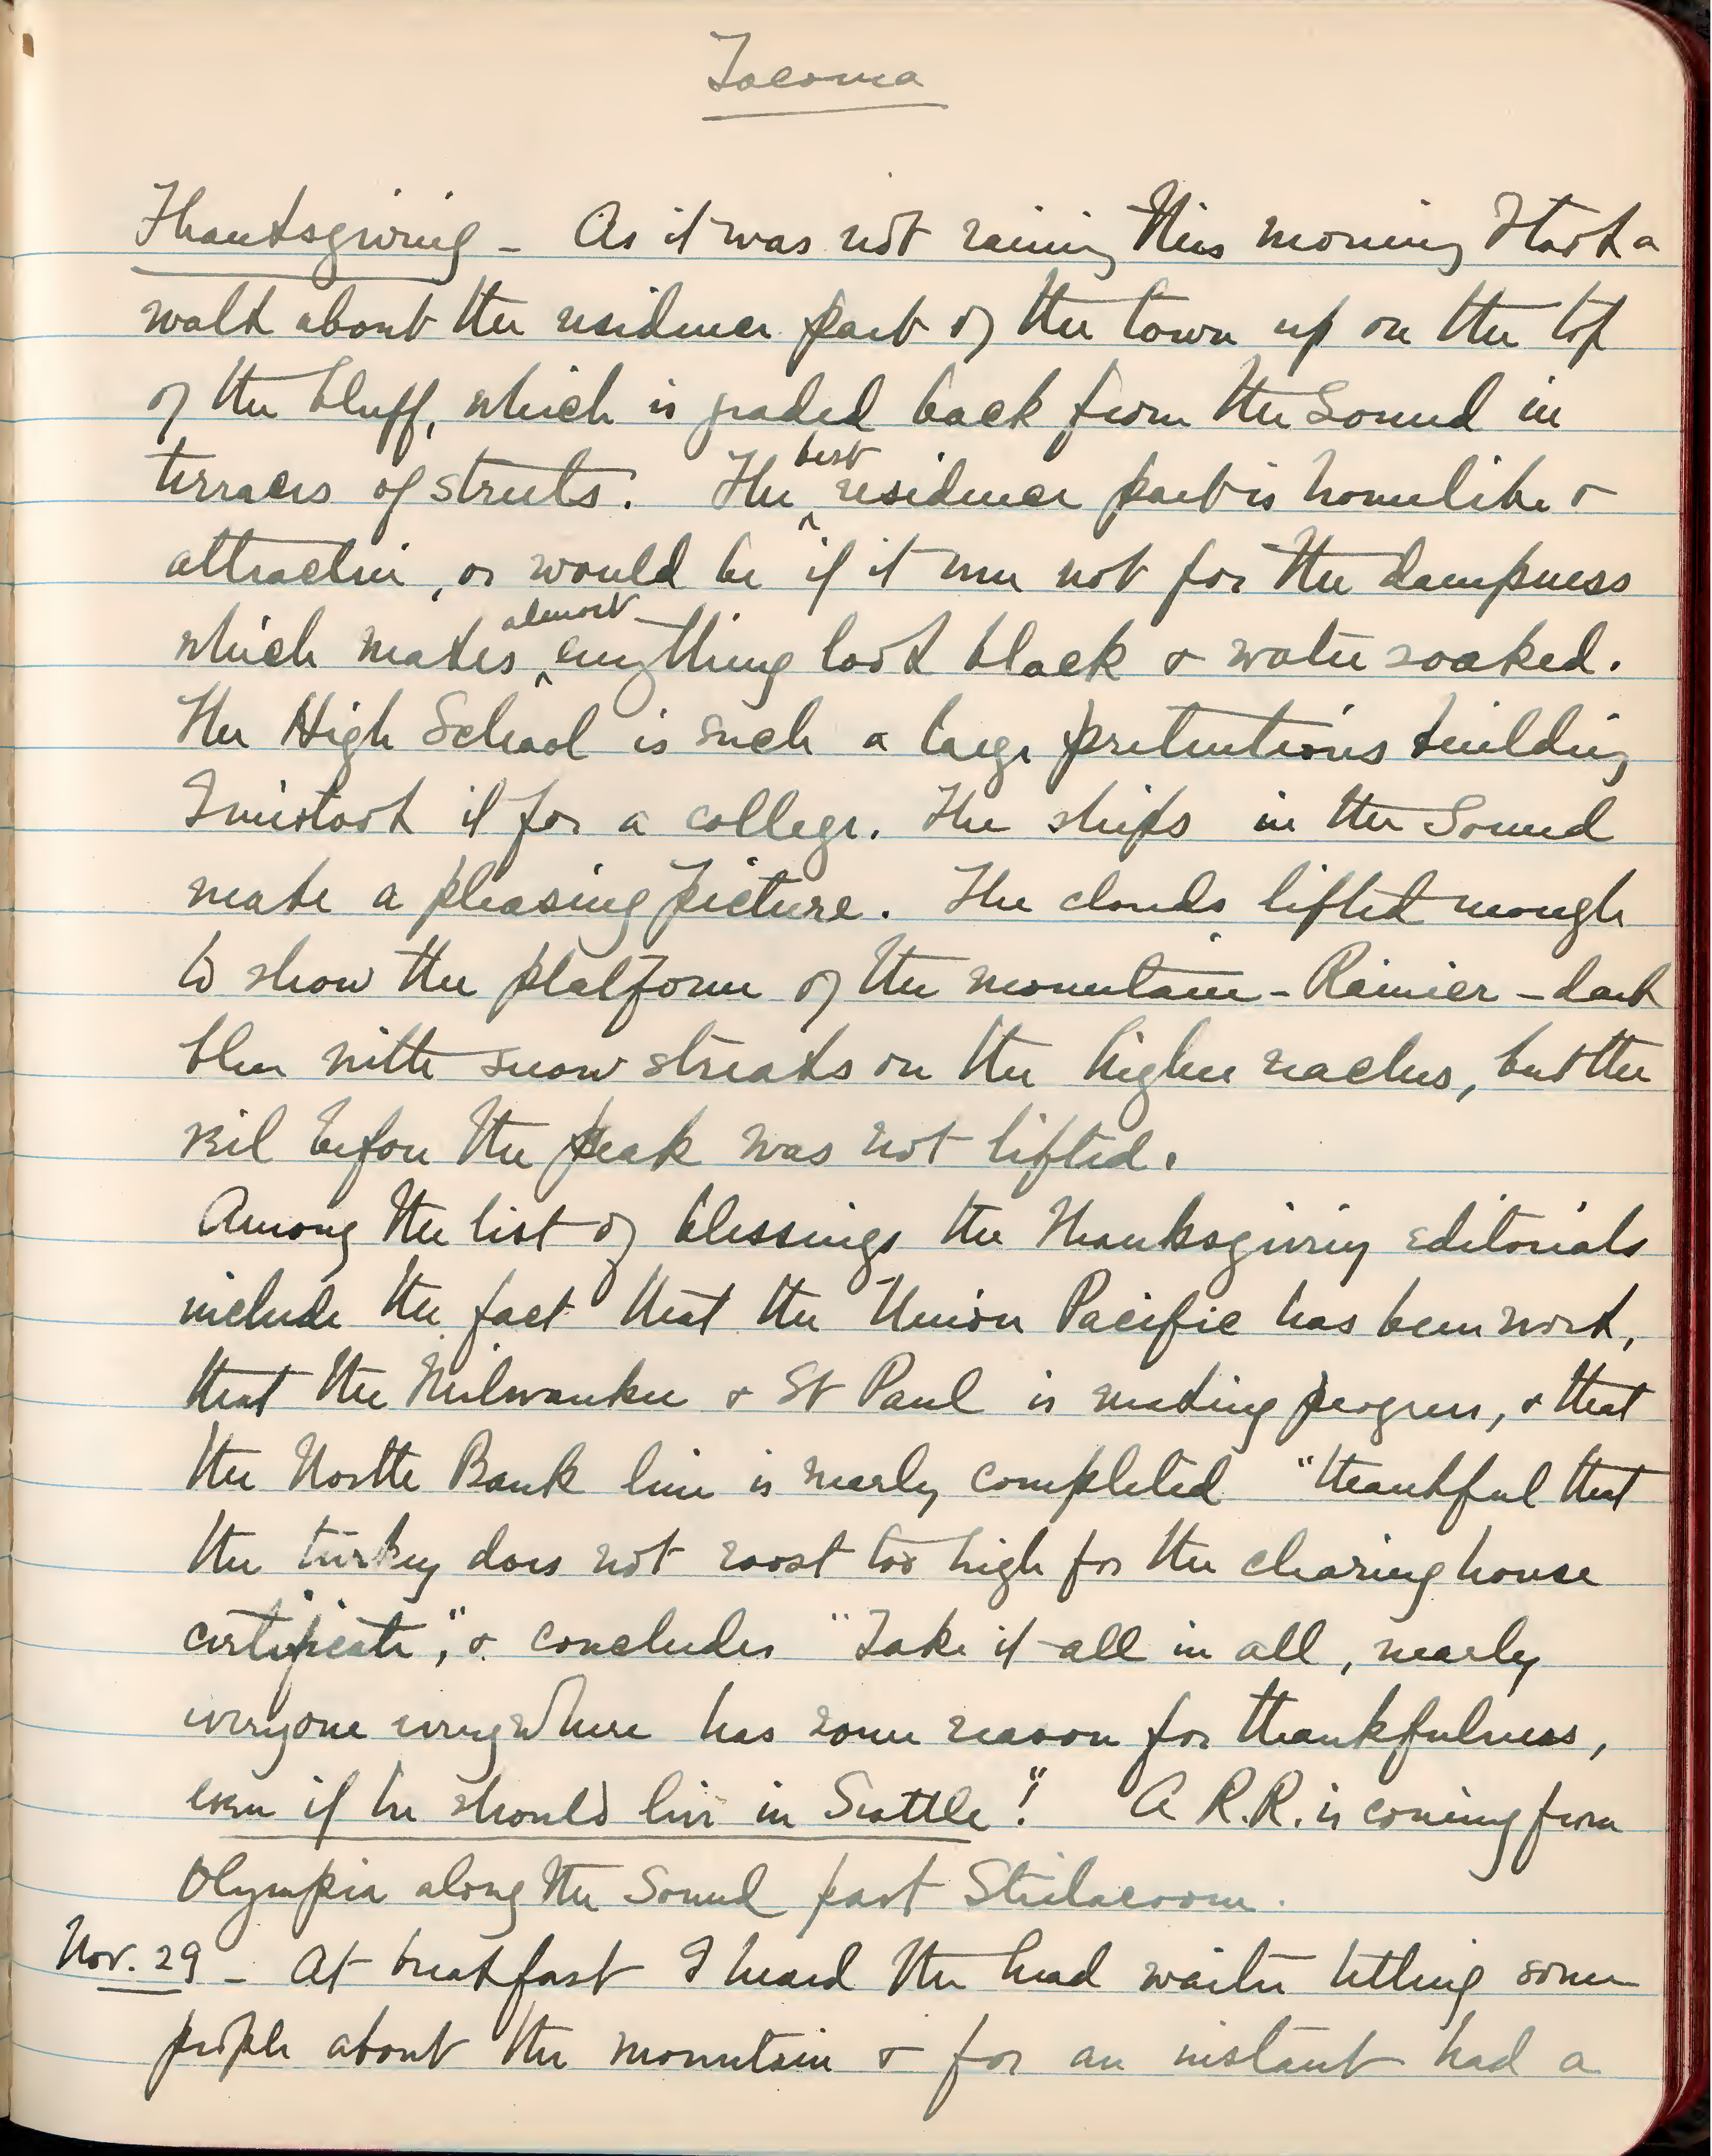 Tacoma
Thanksgiving - As it was not raining this morning I took a
walk about the residence part of the town up on the top
of the bluff, which is graded back from the Sound in
terraces of streets. The best residence part is homelike &
attractive, or would be if it were not for the dampness
which makes almost everything look black & water soaked.
The High School is such a large pretentious building
I mistook it for a college. The ships in the Sound
make a pleasing picture. The clouds lifted enough
to show the platform of the mountain - Rainier - dark
blue with snow streaks on the higher reaches, but the
veil before the peak was not lifted.
Among the list of blessings the Thanksgiving editorials
include the fact that the Union Pacific has begun work,
that the Milwaukee & St Paul is making progress, & that
the North Bank line is nearly completed "thankful that
the turkey does not roost too high for the clearing house
certificate", & concludes "Take it all in all, nearly
everyone everywhere has some reason for thankfulness,
even if he should live in Seattle"! A R.R. is coming from
Olympia along the Sound past Steilacoom.
Nov. 29 - At breakfast I heard the head waiter telling some
people about the mountain & for an instant had a